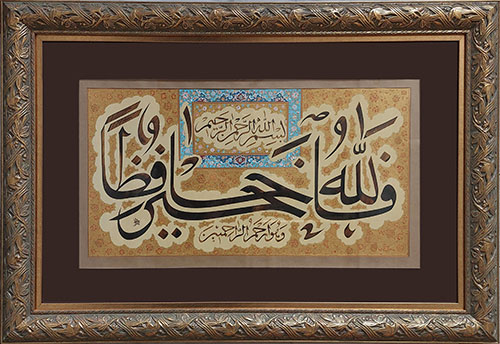 بسم الله الرحمن الرحيم
فالله خير حافظا
وهو ارحم الراحمين